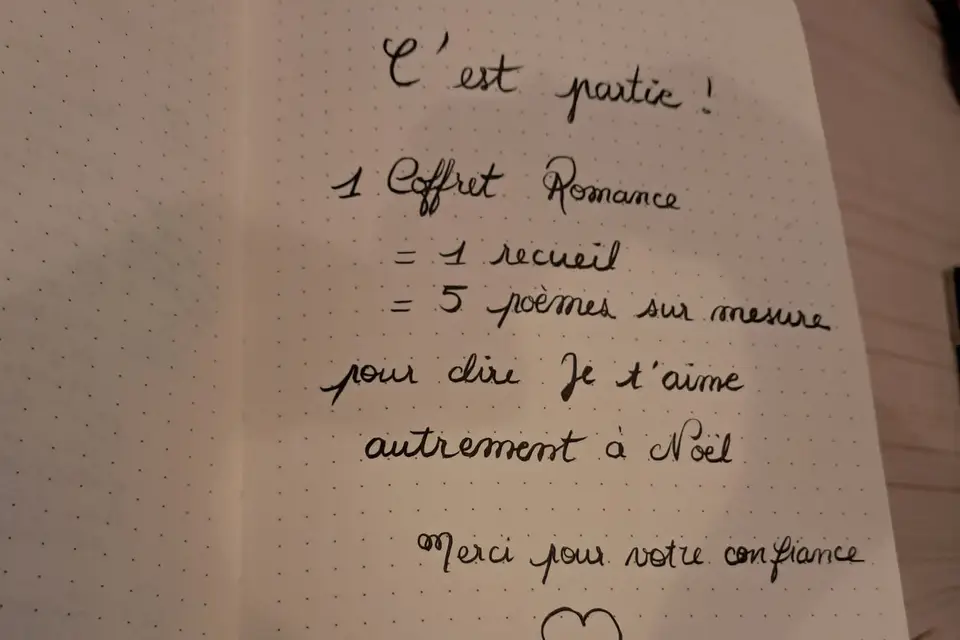 C'est partie !
1 Coffret Romance
= 1 recueil
= 5 poèmes sur mesure
pour dire Je t'aime
autrement à Noël
Merci pour votre confiance